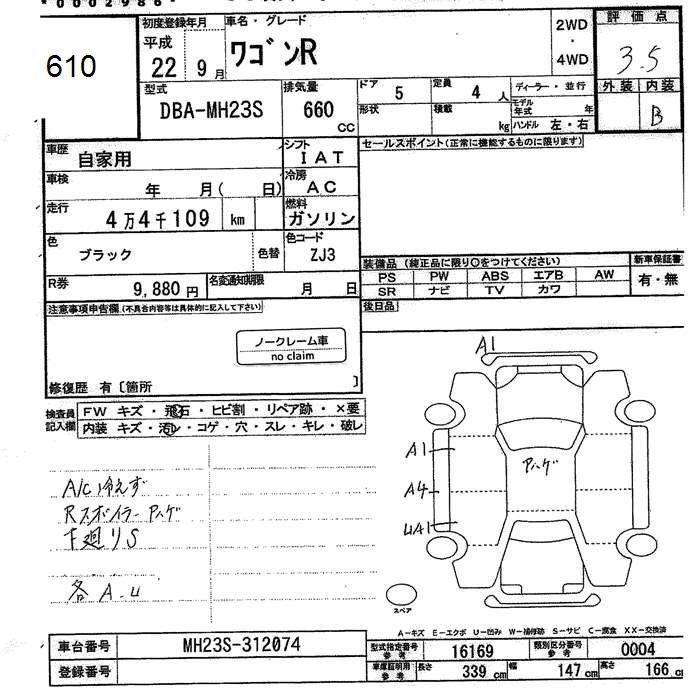 610
初度登録年月
平成
22 年 9 月
車名・グレード
ワゴンR
2WD
・
4WD
評価点
3.5
外装 内装
B
型式
DBA-MH23S
排気量
660 CC
ドア 5
定員 4 人
形状
積載 kg
ディーラー・並行
モデル年式 年
ハンドル 左・右
車歴 自家用
シフト IAT
セールスポイント(正常に機能するものに限ります)
車検 年 月( 日)
冷房 AC
走行 4万4千109 km
燃料 ガソリン
色 ブラック 色替
色コード ZJ3
装備品(純正品に限り○をつけてください)
新車保証書
PS PW ABS エアB AW
有・無
SR ナビ TV カワ
R券 9,880円
名変通知期限 月 日
後日品
注意事項申告欄(不具合内容等は具体的に記入して下さい)
ノークレーム車
no claim
修復歴 有〔箇所 〕
検査員記入欄
FW キズ・飛石・ヒビ割・リペア跡・×要
内装 キズ・汚レ・コゲ・穴・スレ・キレ・破レ
A/C冷えず
Rスポイラー ハゲ
下廻りS
各 A.U
A1
A1
ハゲ
A4
UA1
スペア
A-キズ E-エクボ U-凹み W-補修跡 S-サビ C-腐食 XX-交換済
車台番号 MH23S-312074
型式指定番号 参考 16169
類別区分番号 参考 0004
登録番号
車庫証明用 参考 長さ 339 cm 幅 147 cm 高さ 166 cm